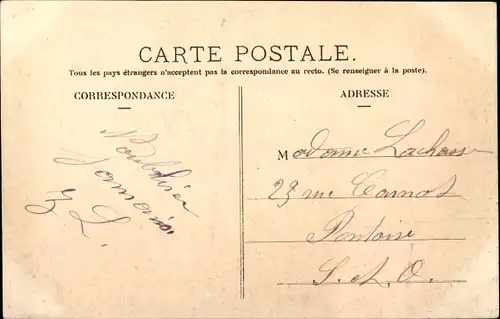 CARTE POSTALE.
Tous les pays étrangers n'acceptent pas la correspondance au recto. (Se renseigner à la poste).
CORRESPONDANCE
ADRESSE
Madame Lachasse
23 rue Carnot
Pontoise
S. et O.